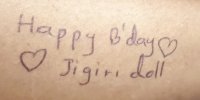 Happy B'day ♡
♡ Jigiri doll